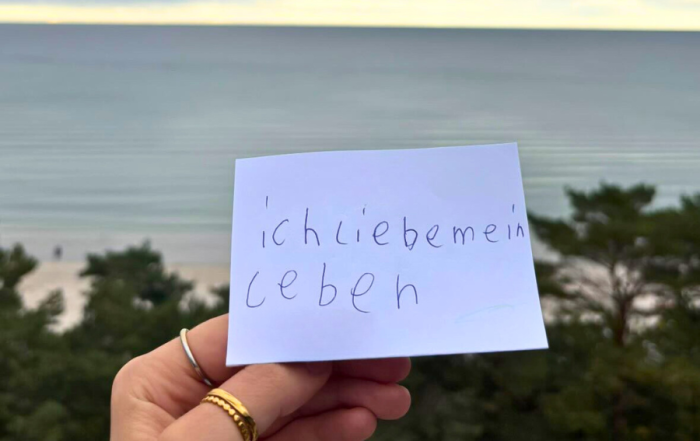 ichliebemein
leben